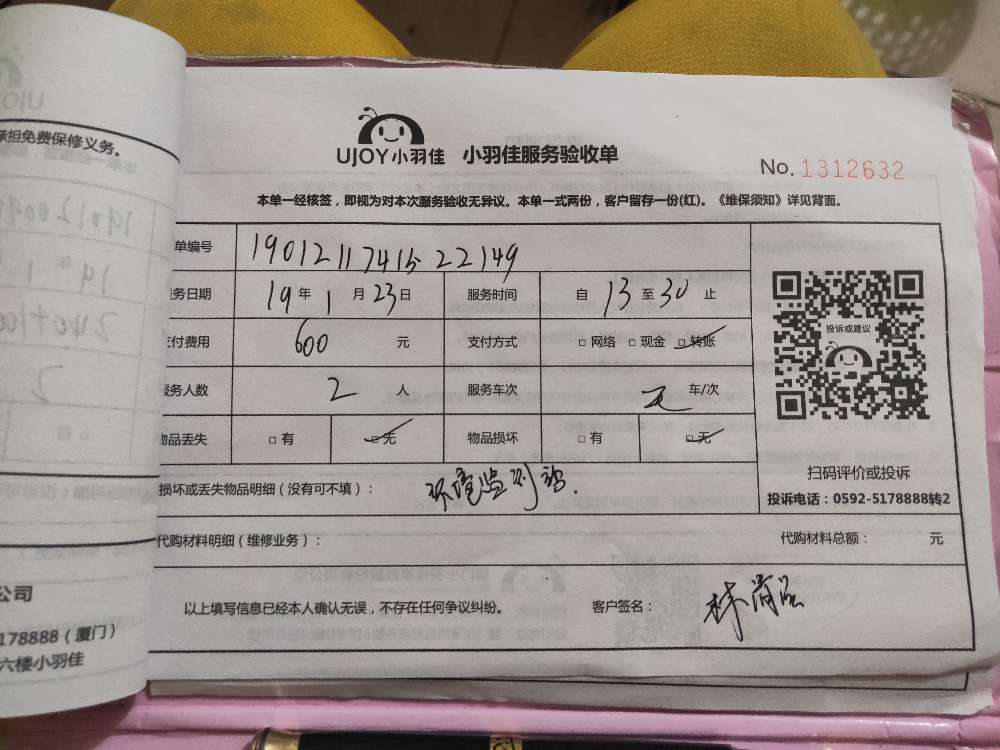 承担免费保修义务。
UJOY小羽佳 小羽佳服务验收单
No. 1312632
本单一经核签，即视为对本次服务验收无异议。本单一式两份，客户留存一份(红)。《维保须知》详见背面。
单编号 19012117415 22149
务日期 19 年 1 月 23 日 服务时间 自 13 至 30 止
付费用 600 元 支付方式 □ 网络 □ 现金 □ 转账
服务人数 2 人 服务车次 车/次
物品丢失 □ 有 □ 无 物品损坏 □ 有 □ 无
投诉或建议
扫码评价或投诉
投诉电话：0592-5178888转2
损坏或丢失物品明细（没有可不填）： 环境监测站.
代购材料明细（维修业务）： 代购材料总额： 元
以上填写信息已经本人确认无误，不存在任何争议纠纷。 客户签名： 林
公司
178888（厦门）
六楼小羽佳